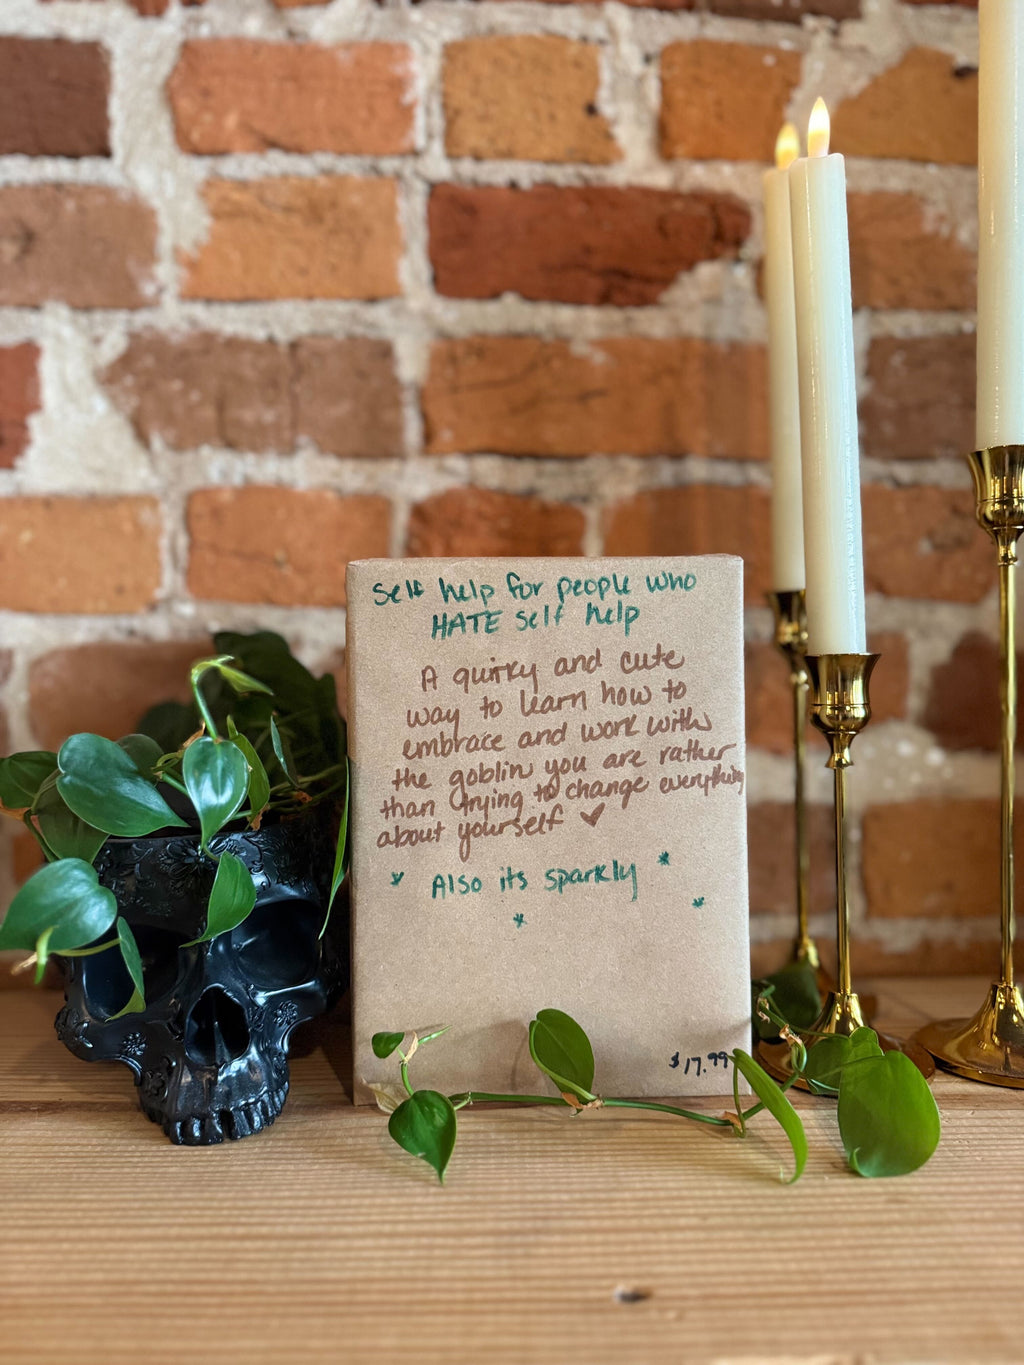 Self help for people who
HATE self help
A quirky and cute
way to learn how to
embrace and work with
the goblin you are rather
than trying to change everything
about yourself
Also its sparkly
$17.99